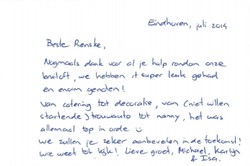 Eindhoven, juli 2014
Beste Renske,
Nogmaals dank voor al je hulp rondom onze
bruiloft, we hebben it super leuk gehad
en enorm genoten!
Van catering tot decoratie, van (niet willen
startende) trouwauto tot nanny, het was
allemaal top in orde. ☺
We zullen je zeker aanbevelen in de toekomst!
Wie weet tot kijk! Lieve groet, Michael, Karlijn
& Isa.